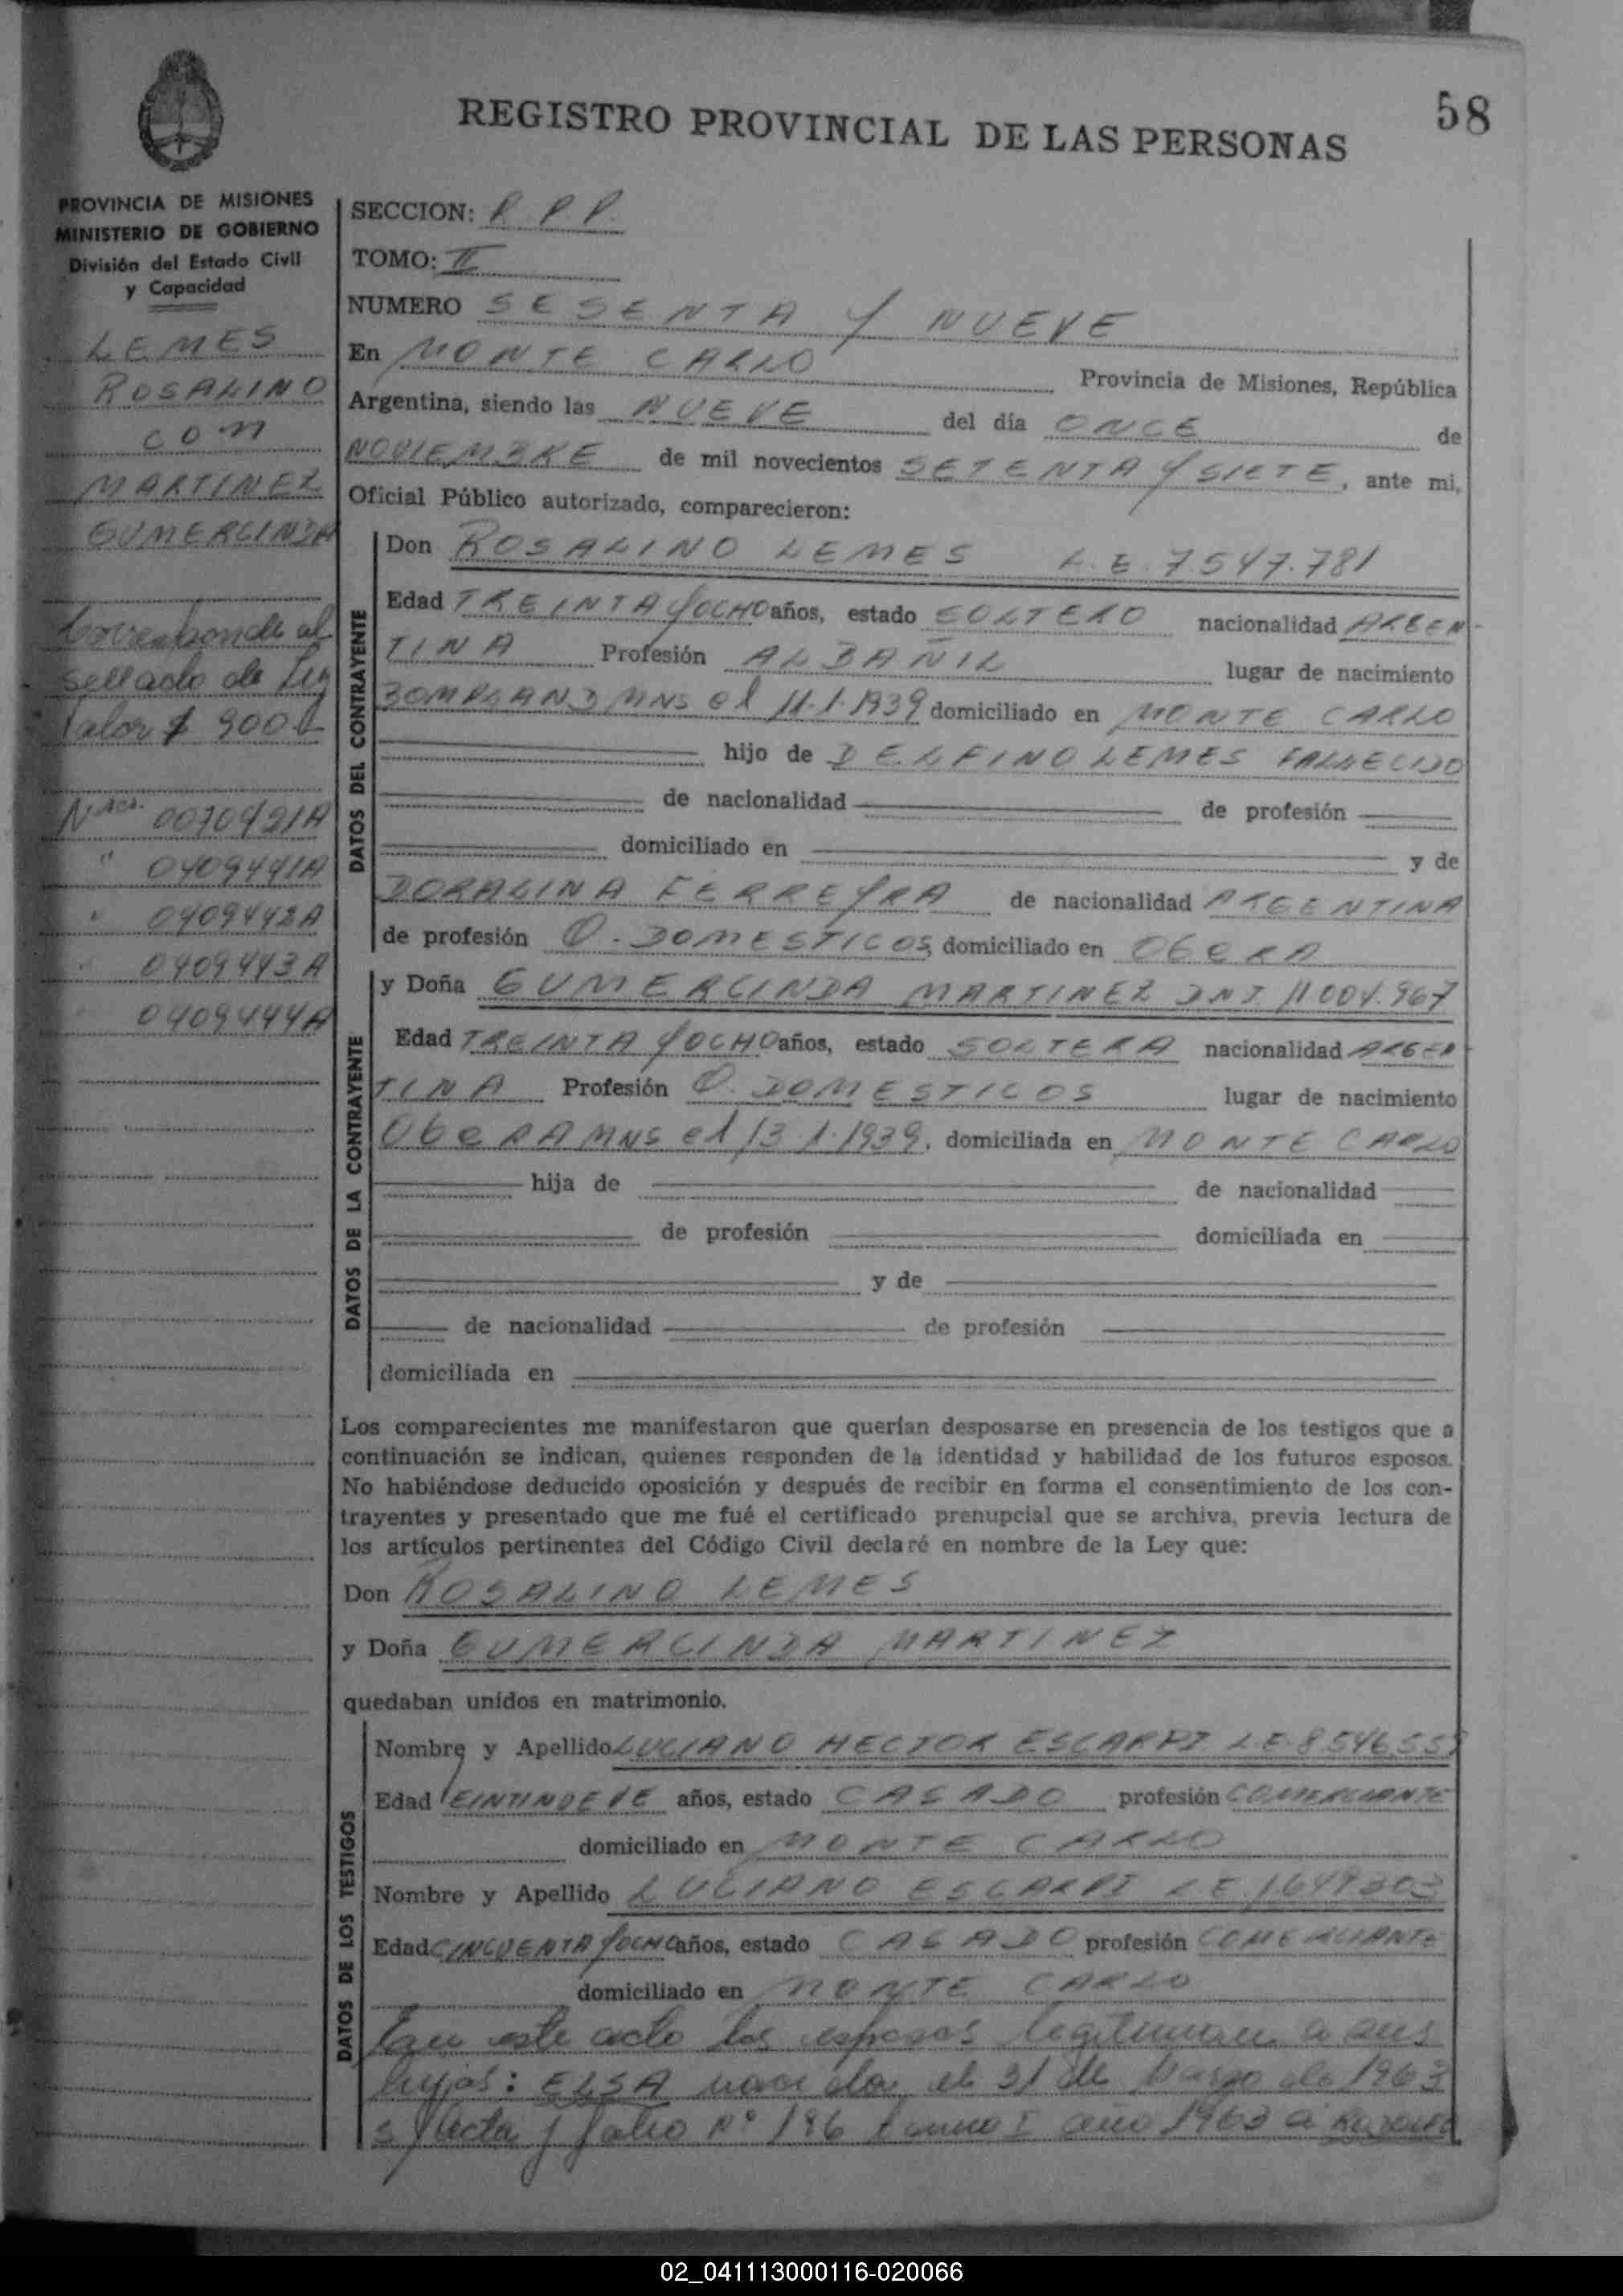 58
REGISTRO PROVINCIAL DE LAS PERSONAS
PROVINCIA DE MISIONES
MINISTERIO DE GOBIERNO
División del Estado Civil
y Capacidad
LEMES
ROSALINO
con
MARTINEZ
GUMERCINDA
Corresponde al
sellado de Ley
Valor $ 900
0070421A
" 0409441A
" 0409442A
" 0409443A
" 0409444A
SECCION: R P P.
TOMO: II
NUMERO SESENTA Y NUEVE
En MONTE CARLO Provincia de Misiones, República
Argentina, siendo las NUEVE del día ONCE de
NOVIEMBRE de mil novecientos SETENTA Y SIETE, ante mi,
Oficial Público autorizado, comparecieron:
DATOS DEL CONTRAYENTE
Don ROSALINO LEMES L.E. 7.547.781
Edad TREINTA Y OCHO años, estado SOLTERO nacionalidad ARGEN-
TINA Profesión ALBAÑIL lugar de nacimiento
BOMPLAND MNS el 11.1.1939 domiciliado en MONTE CARLO
hijo de DELFINO LEMES FALLECIDO
de nacionalidad de profesión
domiciliado en y de
DORALINA FERREYRA de nacionalidad ARGENTINA
de profesión Q. DOMESTICOS, domiciliado en OBERA
DATOS DE LA CONTRAYENTE
y Doña GUMERCINDA MARTINEZ DNI. 11.004.967
Edad TREINTA Y OCHO años, estado SOLTERA nacionalidad ARGEN
TINA Profesión Q. DOMESTICOS lugar de nacimiento
OBERA MNS el 13.1.1939, domiciliada en MONTE CARLO
hija de de nacionalidad
de profesión domiciliada en
y de
de nacionalidad de profesión
domiciliada en
Los comparecientes me manifestaron que querían desposarse en presencia de los testigos que a
continuación se indican, quienes responden de la identidad y habilidad de los futuros esposos.
No habiéndose deducido oposición y después de recibir en forma el consentimiento de los con-
trayentes y presentado que me fué el certificado prenupcial que se archiva, previa lectura de
los artículos pertinentes del Código Civil declaré en nombre de la Ley que:
Don ROSALINO LEMES
y Doña GUMERCINDA MARTINEZ
quedaban unidos en matrimonio.
DATOS DE LOS TESTIGOS
Nombre y Apellido LUCIANO HECTOR ESCARPI L.E. 8546.55
Edad VEINTINUEVE años, estado CASADO profesión COMERCIANTE
domiciliado en MONTE CARLO
Nombre y Apellido LUCIANO ESCARPI L.E. 1.649303
Edad CINCUENTA Y OCHO años, estado CASADO profesión COMERCIANTE
domiciliado en MONTE CARLO
En este acto los esposos legitiman a sus
hijos: ELSA nacida el 31 de Marzo de 1963
s/ acta y folio Nº 186 tomo I año 1963 a
02_041113000116-020066